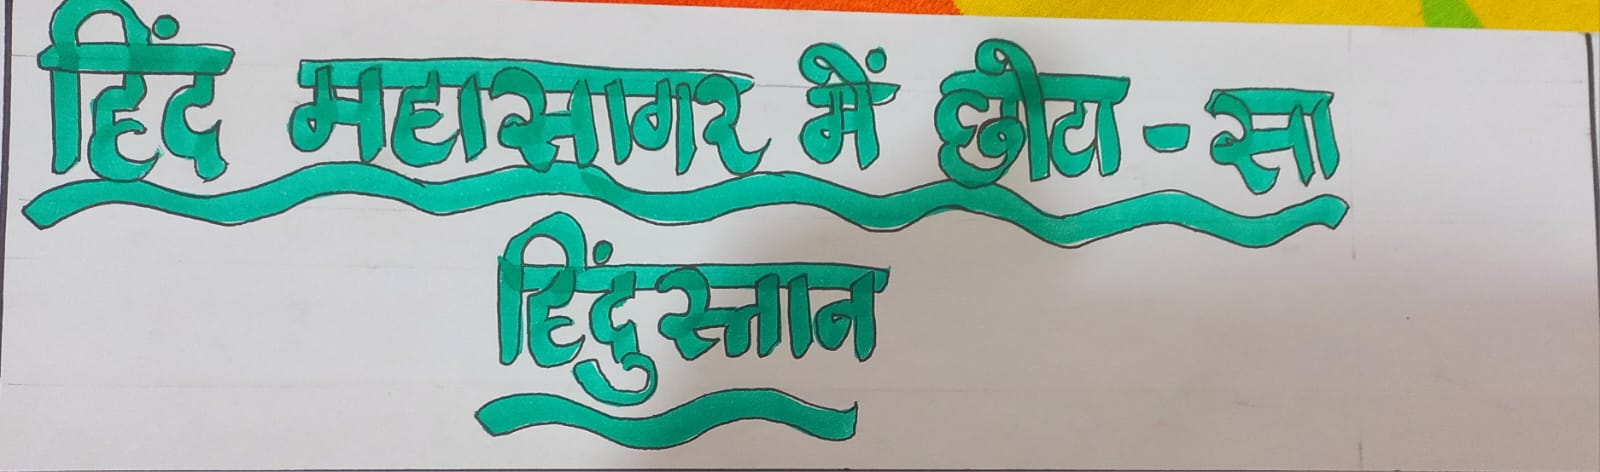 हिंद महासागर में छोटा - सा
हिंदुस्तान